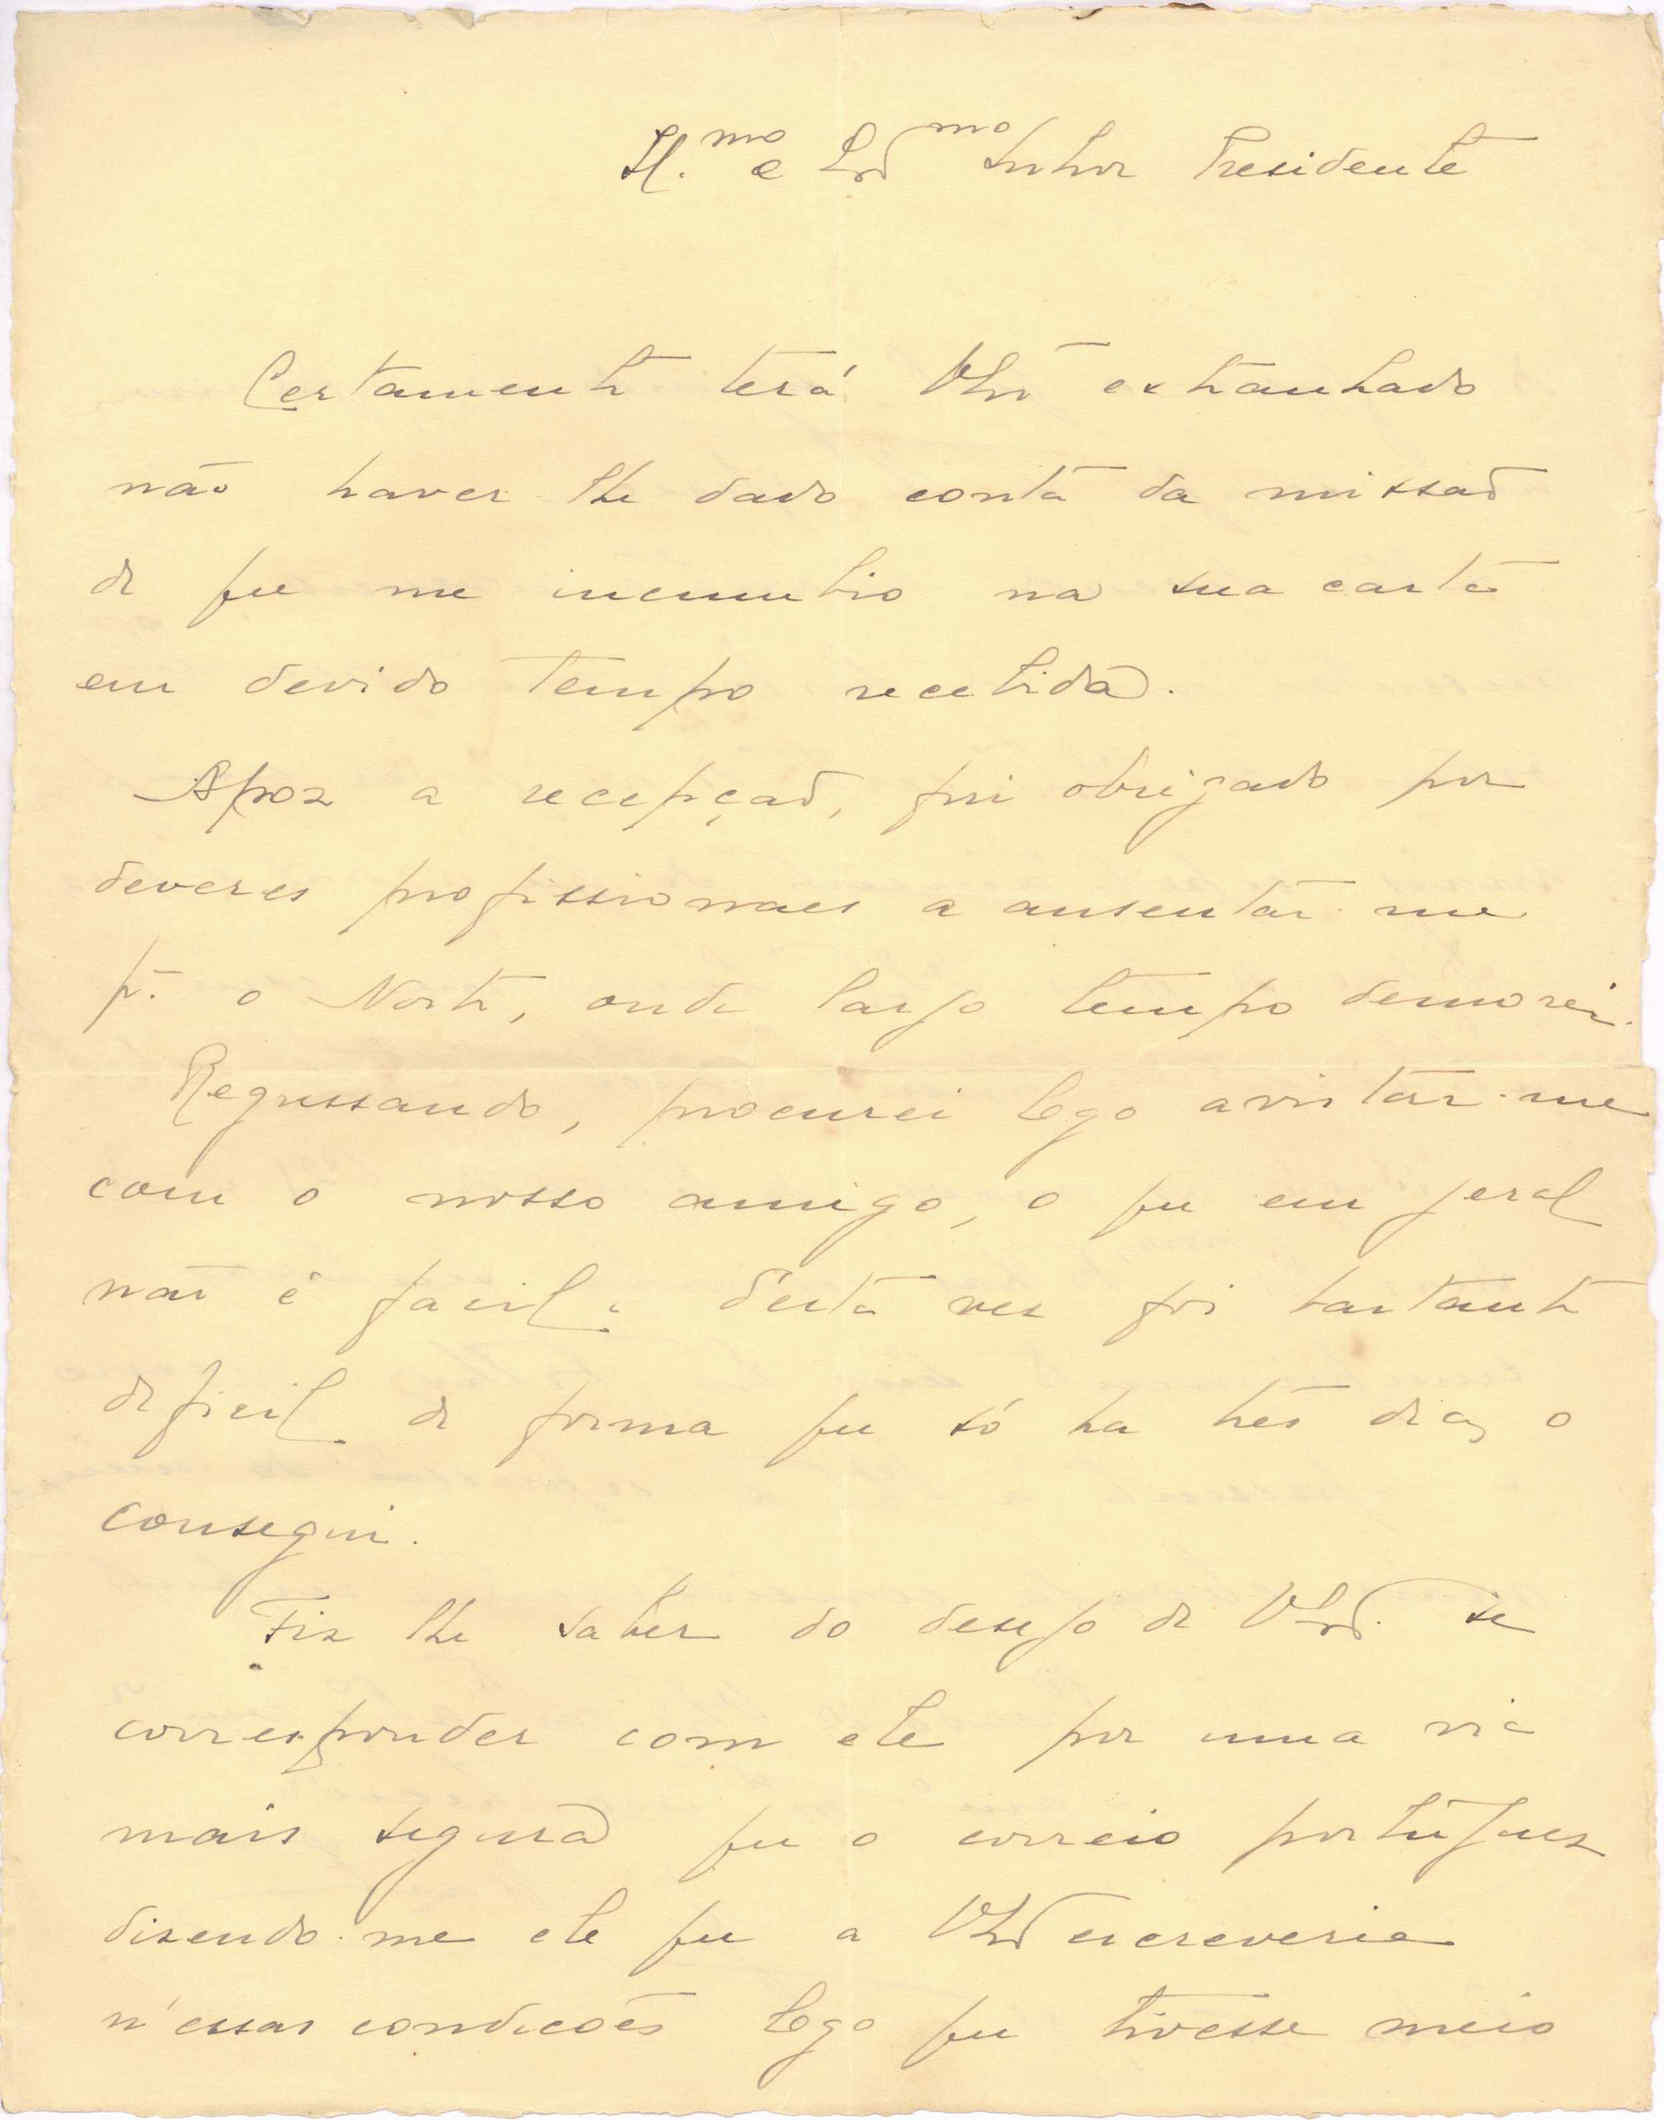 Il.mo e Ex.mo Senhor Presidente
Certamente terá V Exa extranhado
não haver-lhe dado conta da missão
de que me incumbio na sua carta
em devido tempo recebida.
Apoz a recepção, fui obrigado por
deveres profissionaes a ausentar-me
pa. o Norte, onde largo tempo demorei.
Regressando, procurei logo avistar-me
com o nosso amigo, o que em geral
não é facil; d'esta vez foi bastante
dificil de forma que só ha três dias o
consegui.
Fiz lhe saber do desejo de V Exa. se
corresponder com ele por uma via
mais segura que o correio portuguez
dizendo-me ele que a V Exa escreveria
n'essas condicões logo que tivesse meio